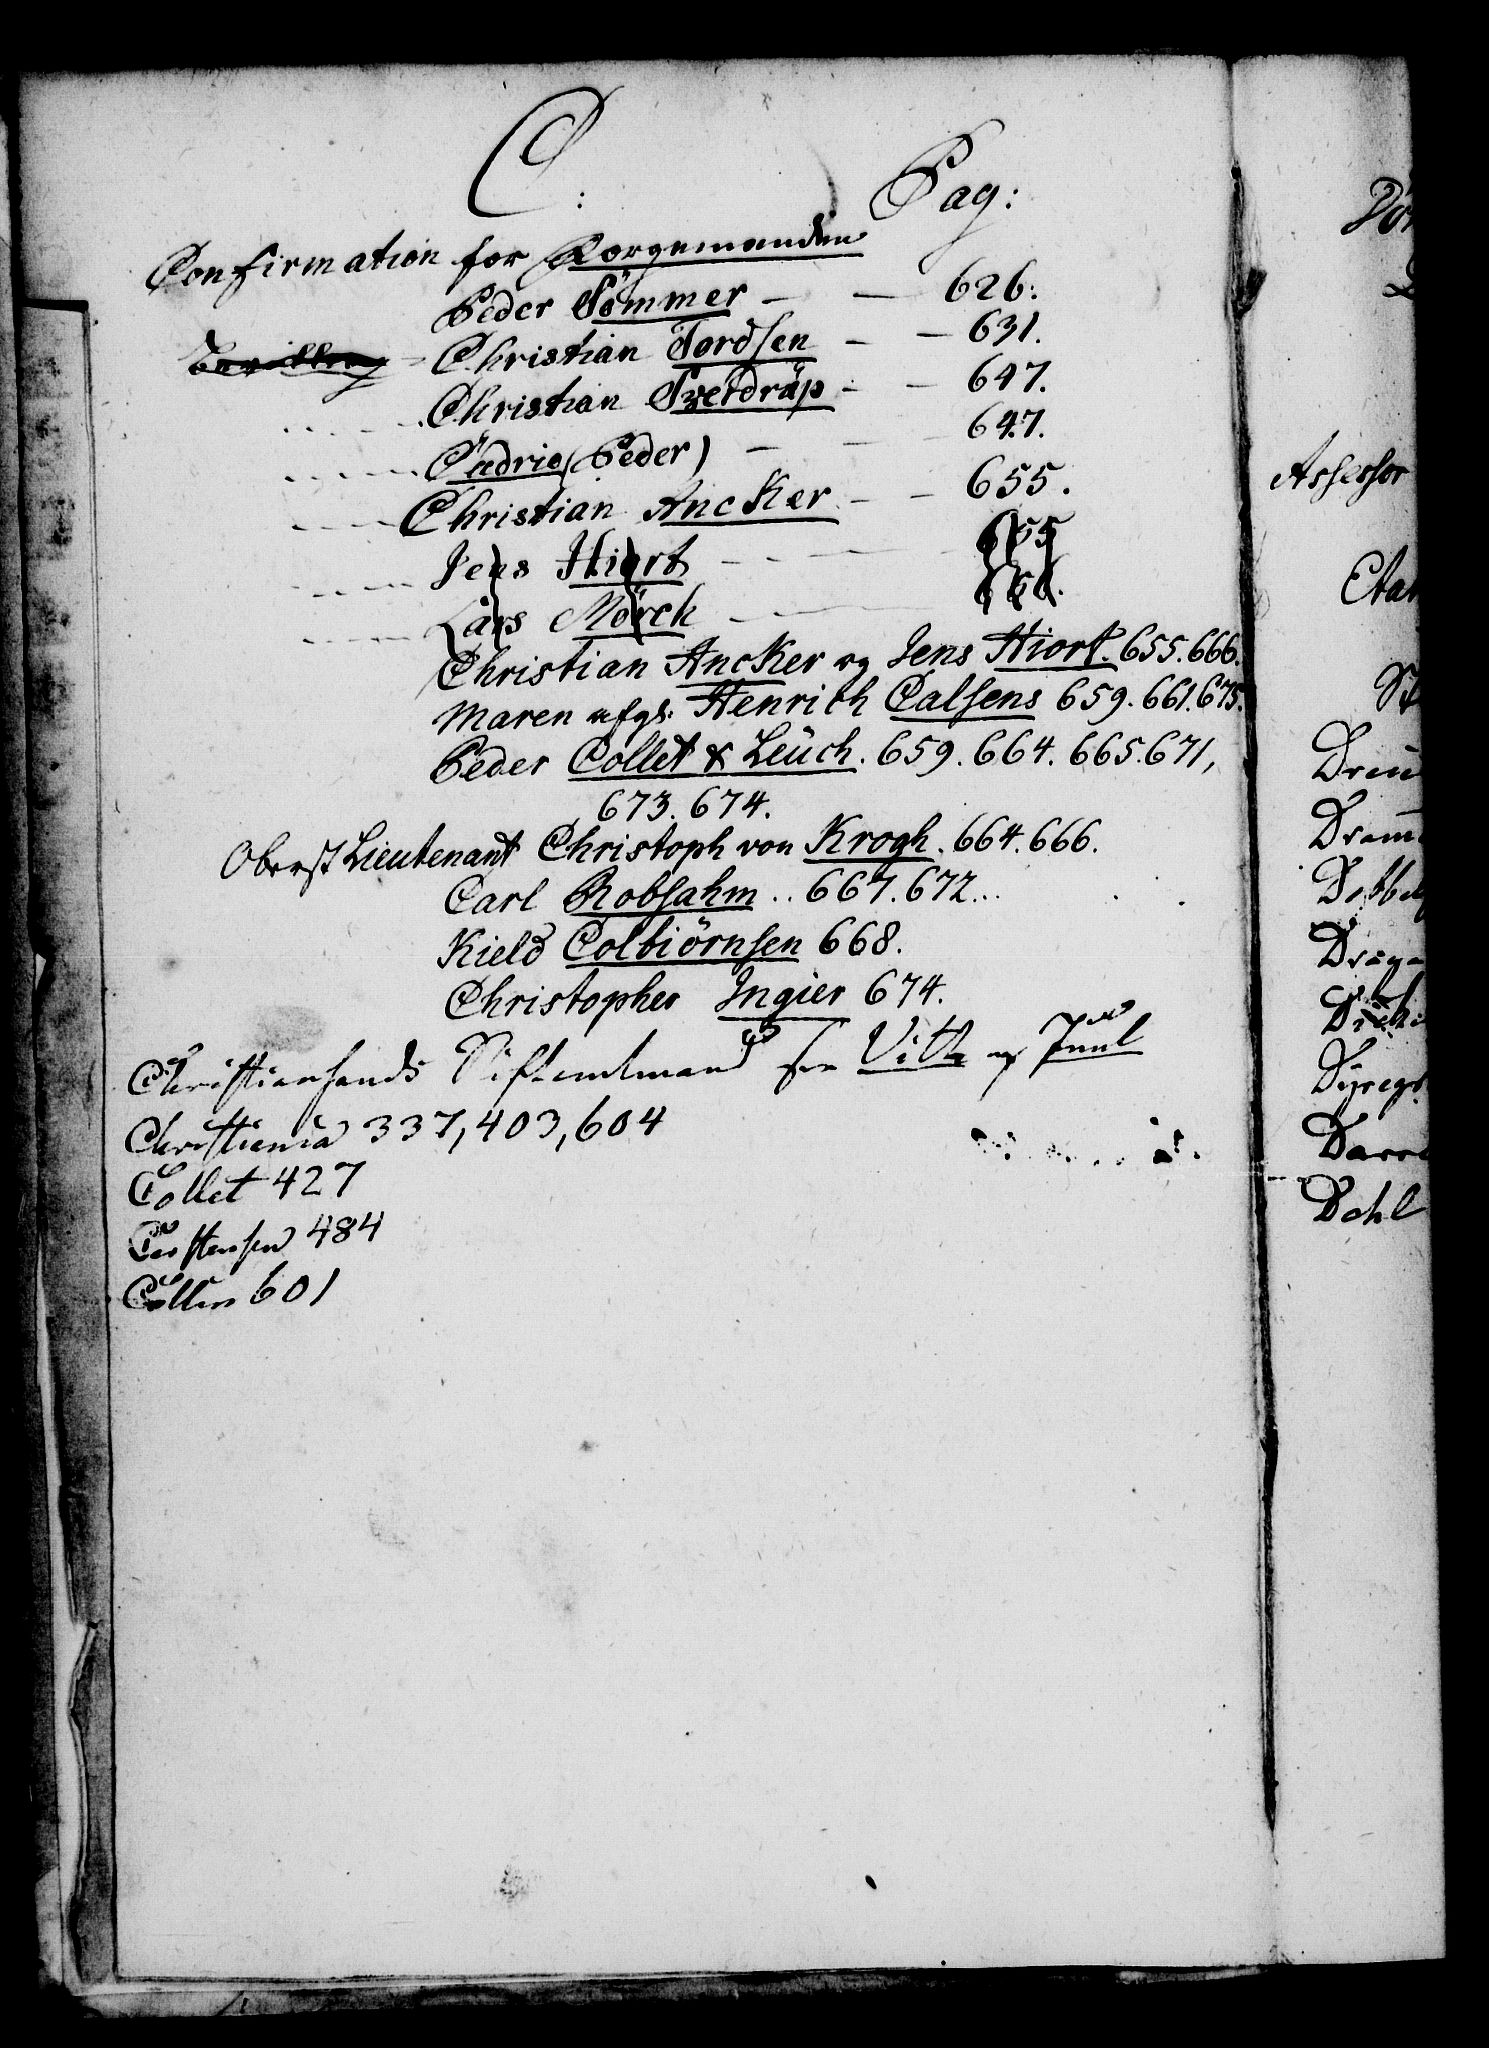 C:
Pag:
Confirmation for Borgemanden
Peder Sömmer — — 626:
Christian Tordsen — — 631.
Christian Tzetdrüp — — 647.
Cudrio (Peder) — — 647.
Christian AncKer — — 655.
Jens Hiort — — 655
Lars Mörch — — 656.
Christian AncKer og Jens Hiort. 655. 666.
Maren afgl: Henrich Calsens 659. 661. 675.
Peder Collet & Leuch. 659. 664. 665. 671,
673. 674.
Oberst Lieutenant Christoph von Krogh. 664. 666.
Carl Robsahm .. 667. 672...
Kield Colbiörnsen 668.
Christopher Ingier 674.
Christiansands Stiftamtmand see Vitth og Juul
Christiania 337, 403, 604
Collet 427
Carstensen 484
Collin 601
Assessor
Etat
Dahl